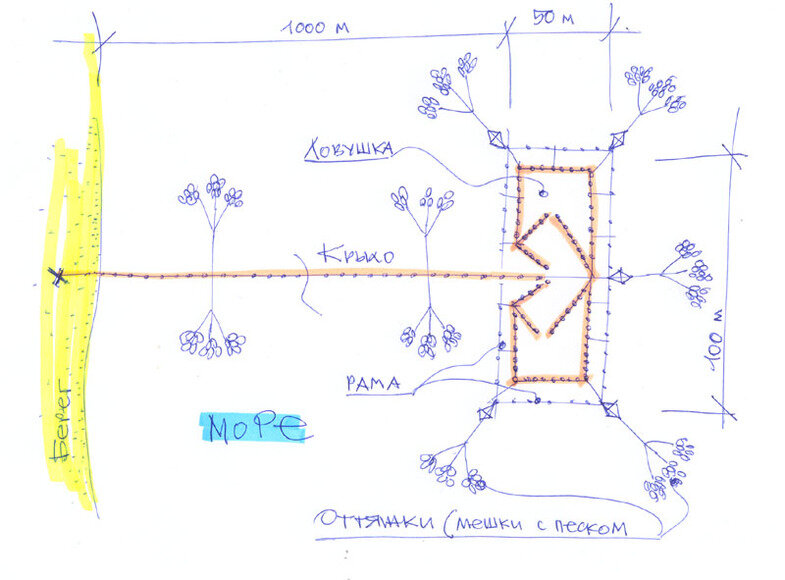 1000 м
50 м
Ловушка
Крыло
100 м
РАМА
Берег
МОРЕ
Оттяжки (мешки с песком